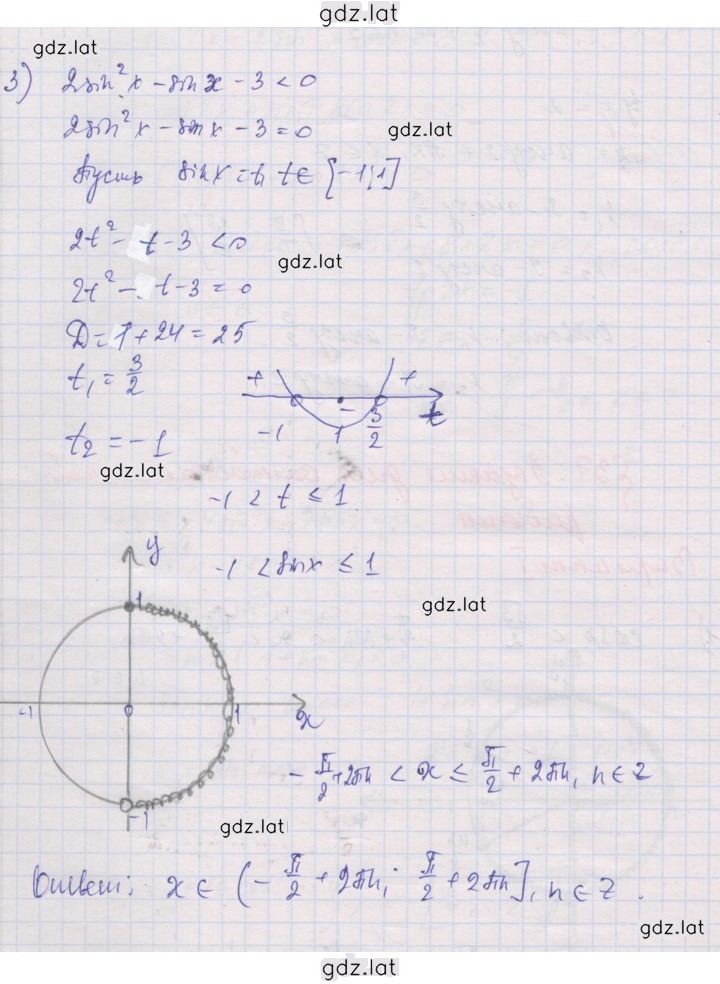 gdz.lat
gdz.lat
3) 2sin²x - sinx - 3 < 0
2sin²x - sinx - 3 = 0
gdz.lat
Пусть sinx = t, t ∈ [-1;1]
2t² - t - 3 < 0
gdz.lat
2t² - t - 3 = 0
D = 1 + 24 = 25
t₁ = 3/2
+ - +
-1 1 3/2 t
t₂ = -1
gdz.lat
-1 < t ≤ 1
y
-1 < sinx ≤ 1
1
gdz.lat
-1 0 1 x
-π/2 + 2πn < x ≤ π/2 + 2πn, n ∈ Z
-1
gdz.lat
Ответ: x ∈ (-π/2 + 2πn; π/2 + 2πn], n ∈ Z.
gdz.lat
gdz.lat